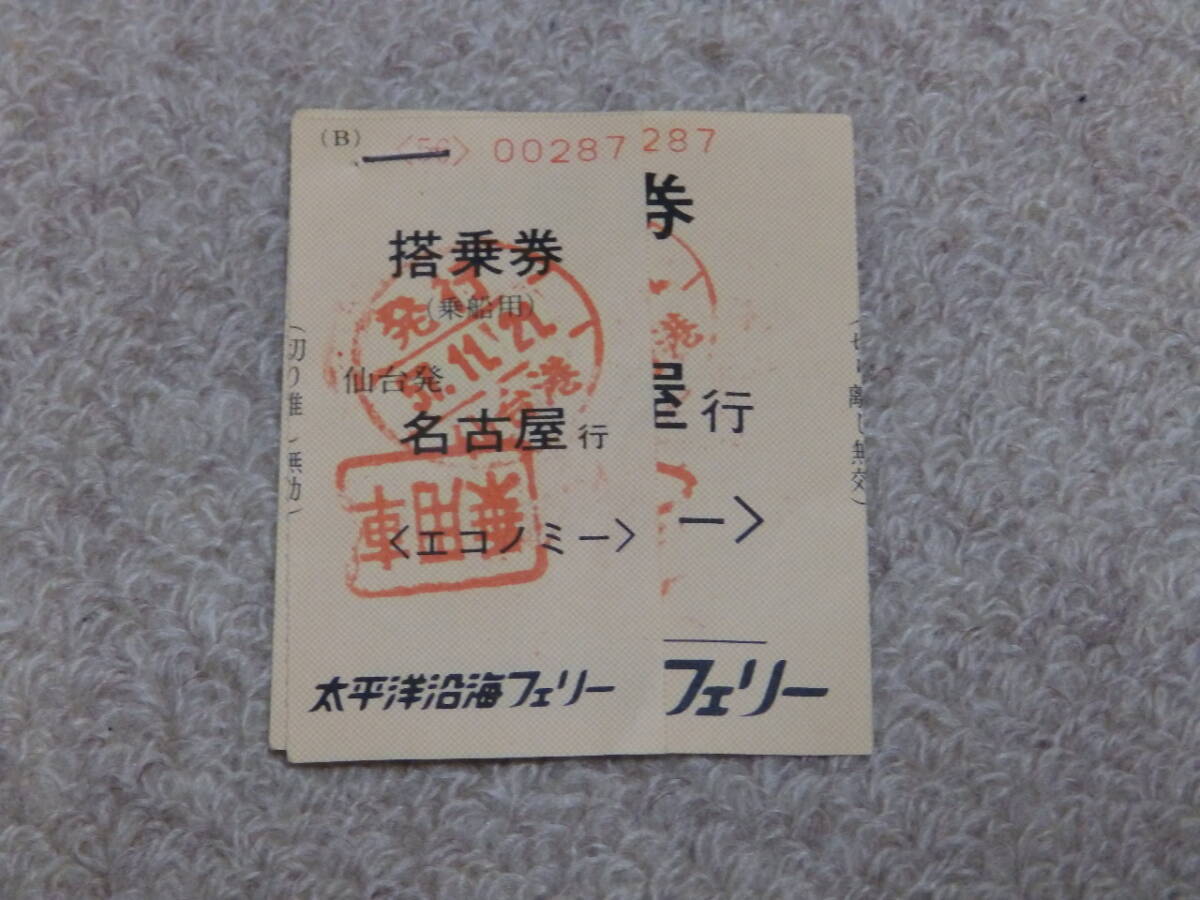 (B)
<50> 00287
搭乗券
(乗船用)
発行
11.22
港
仙台発
名古屋行
乗用車
<エコノミー>
太平洋沿海フェリー
287
券
屋行
ー>
フェリー
(切り離し無効)